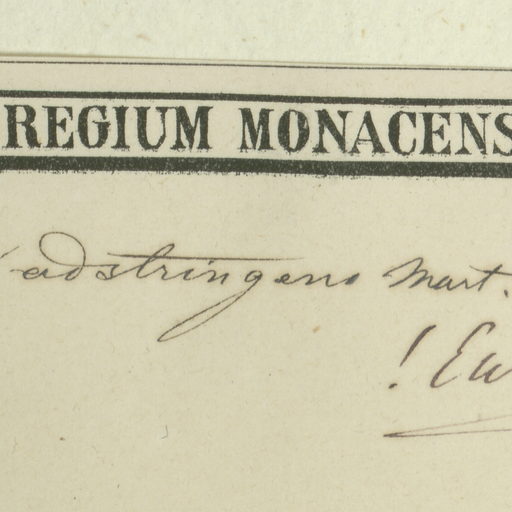 REGIUM MONACENS
adstringens Mart.
! Ew